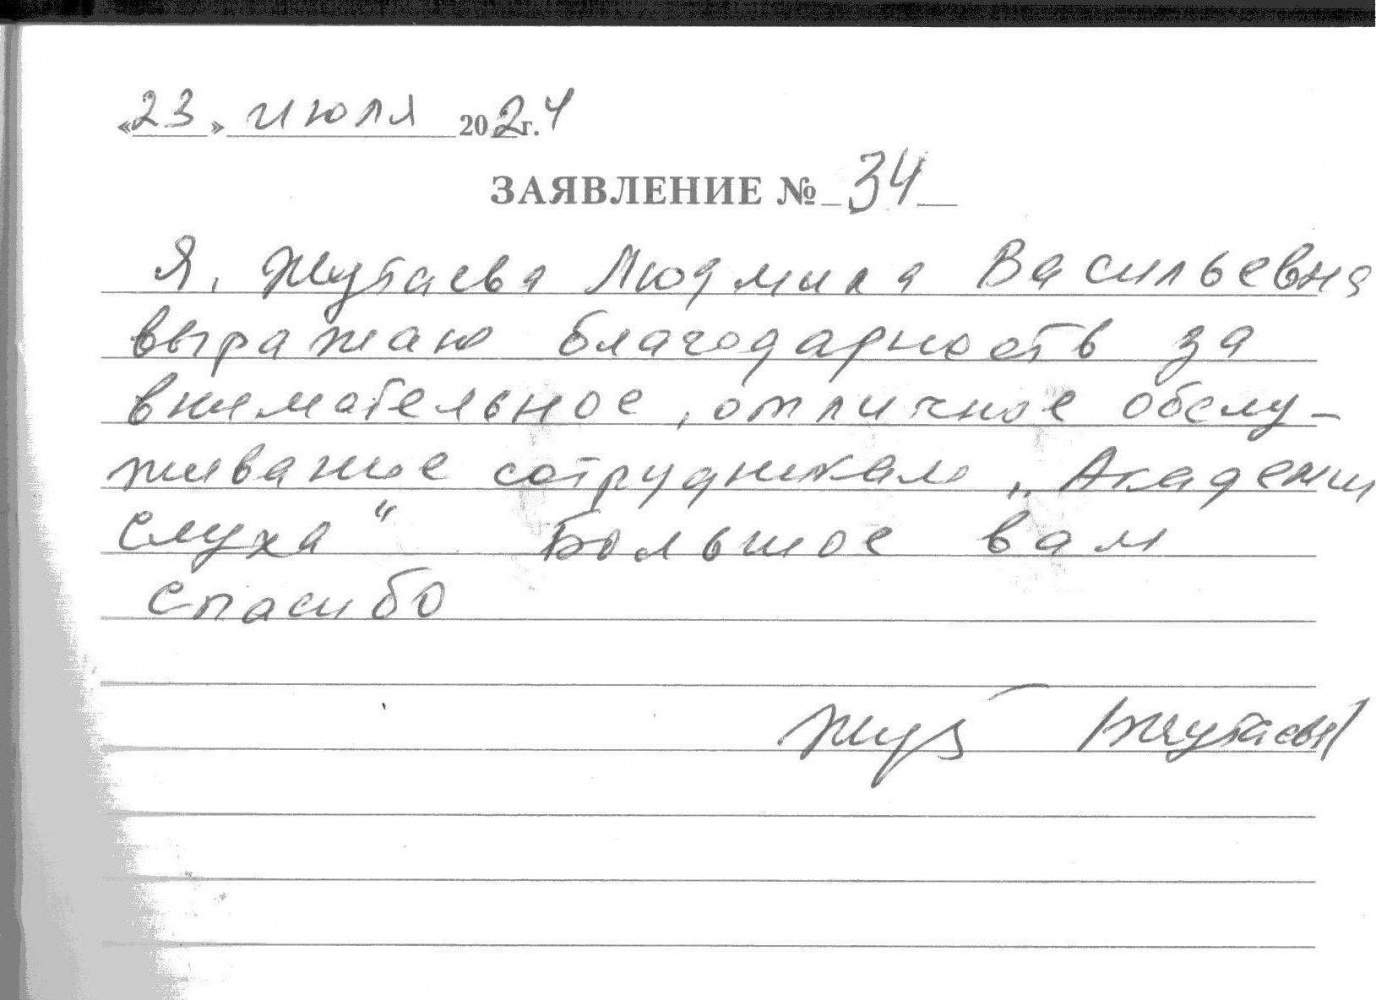 «23» июля 2024 г.
ЗАЯВЛЕНИЕ № 34
Я, Жутаева Людмила Васильевна
выражаю благодарность за
внимательное, отличное обслу-
живание сотрудникам „Академии
слуха“ Большое вам
спасибо
Жут /Жутаева/